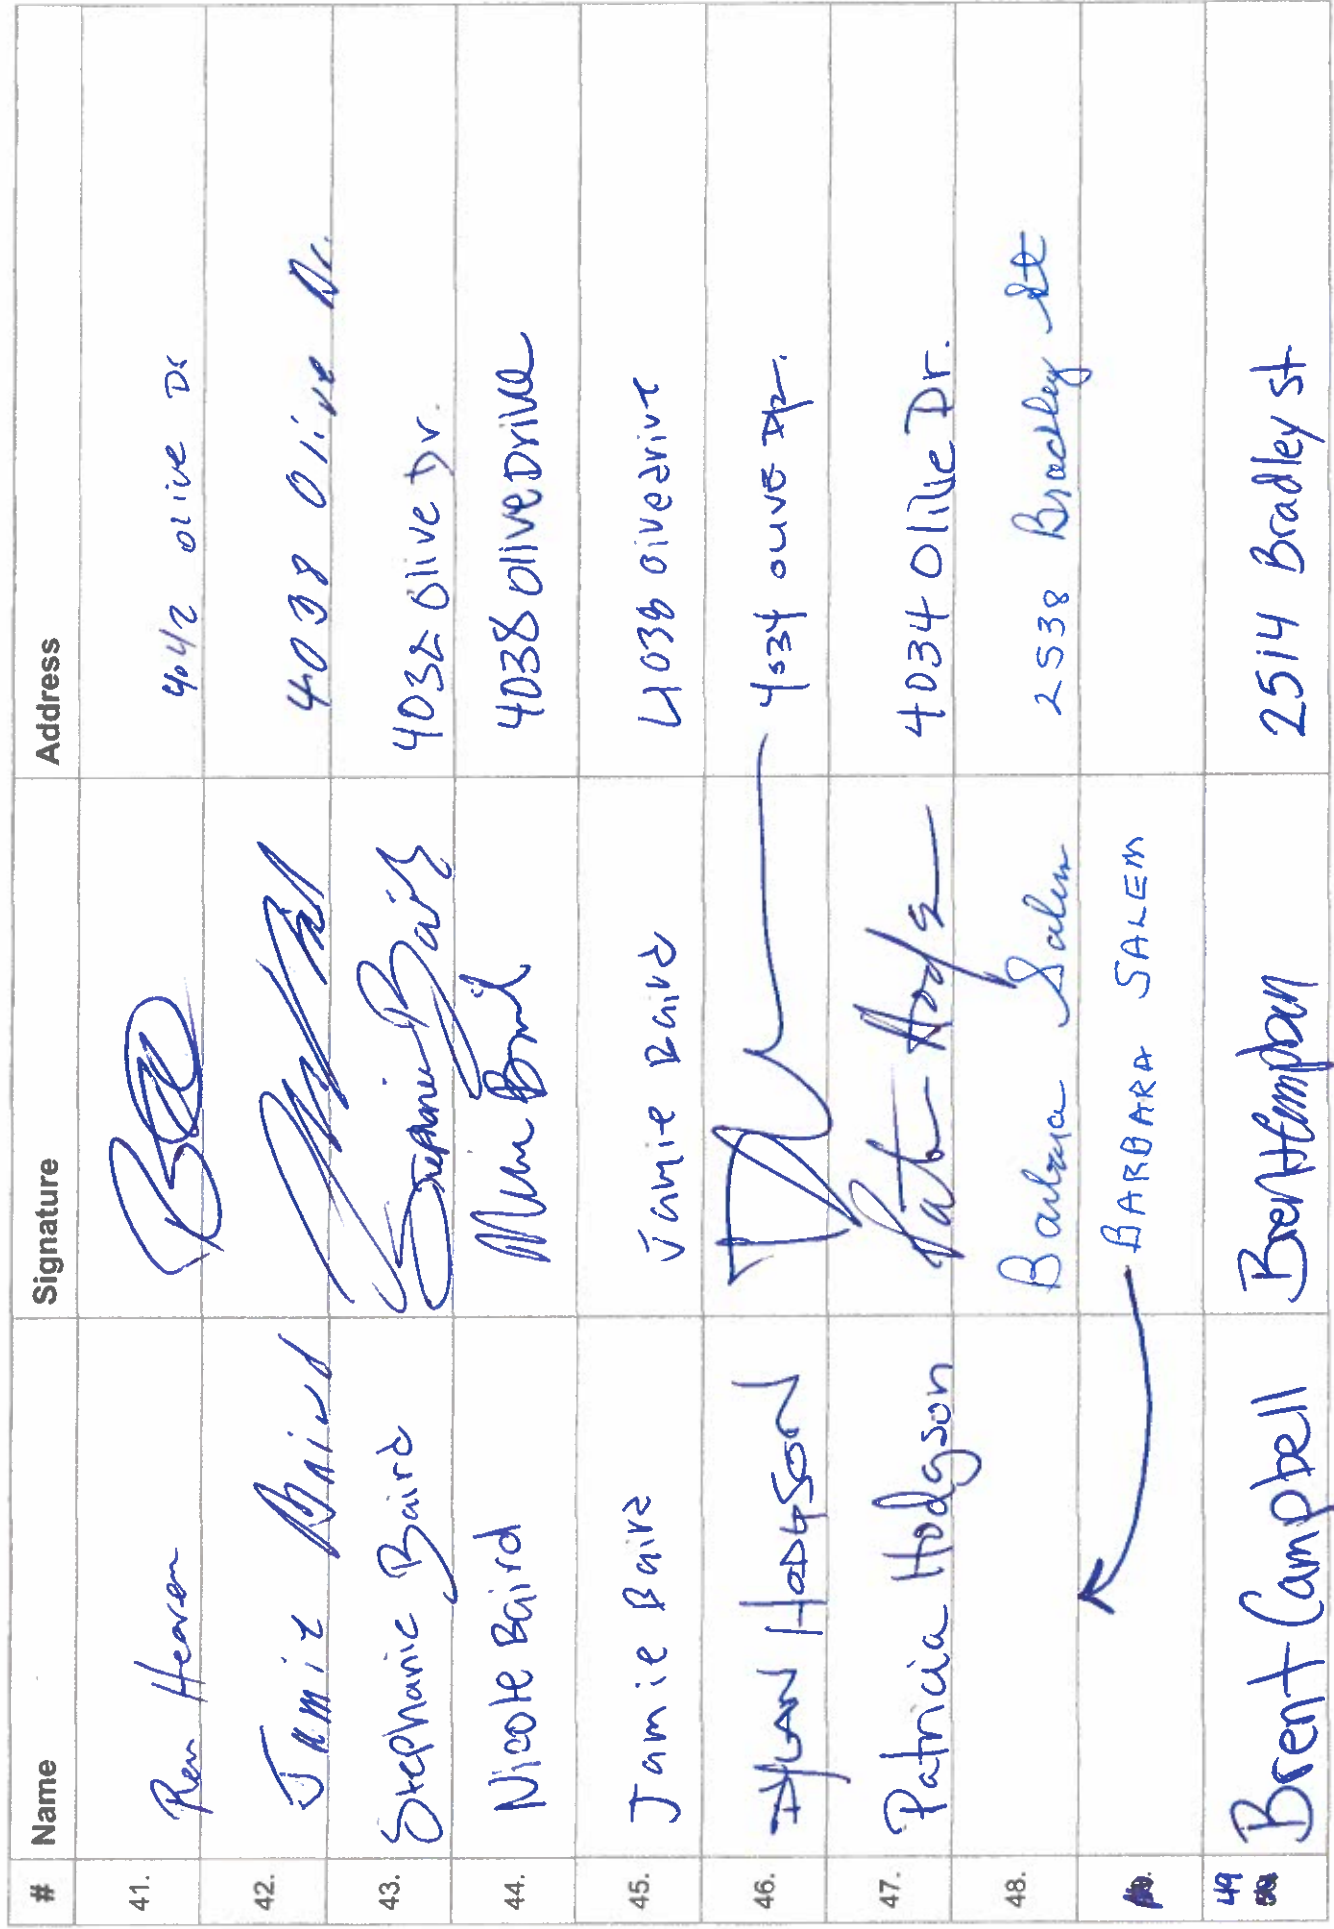 # Name Signature Address
41. Heaven 4042 olive Dr
42. Jamie Baird 4038 Olive Dr.
43. Stephanie Baird Stephanie Baird 4032 Olive Dr.
44. Nicole Baird 4038 Olive Drive
45. Jamie Baird Jamie Baird 4038 Oivedrive
46. DYLAN HODGSON 4034 OLIVE DR.
47. Patricia Hodgson 4034 Olive Dr.
48. Barbara Salem 2538 Bradley St
BARBARA SALEM
49 Brent Campbell Brent Campbell 2514 Bradley St